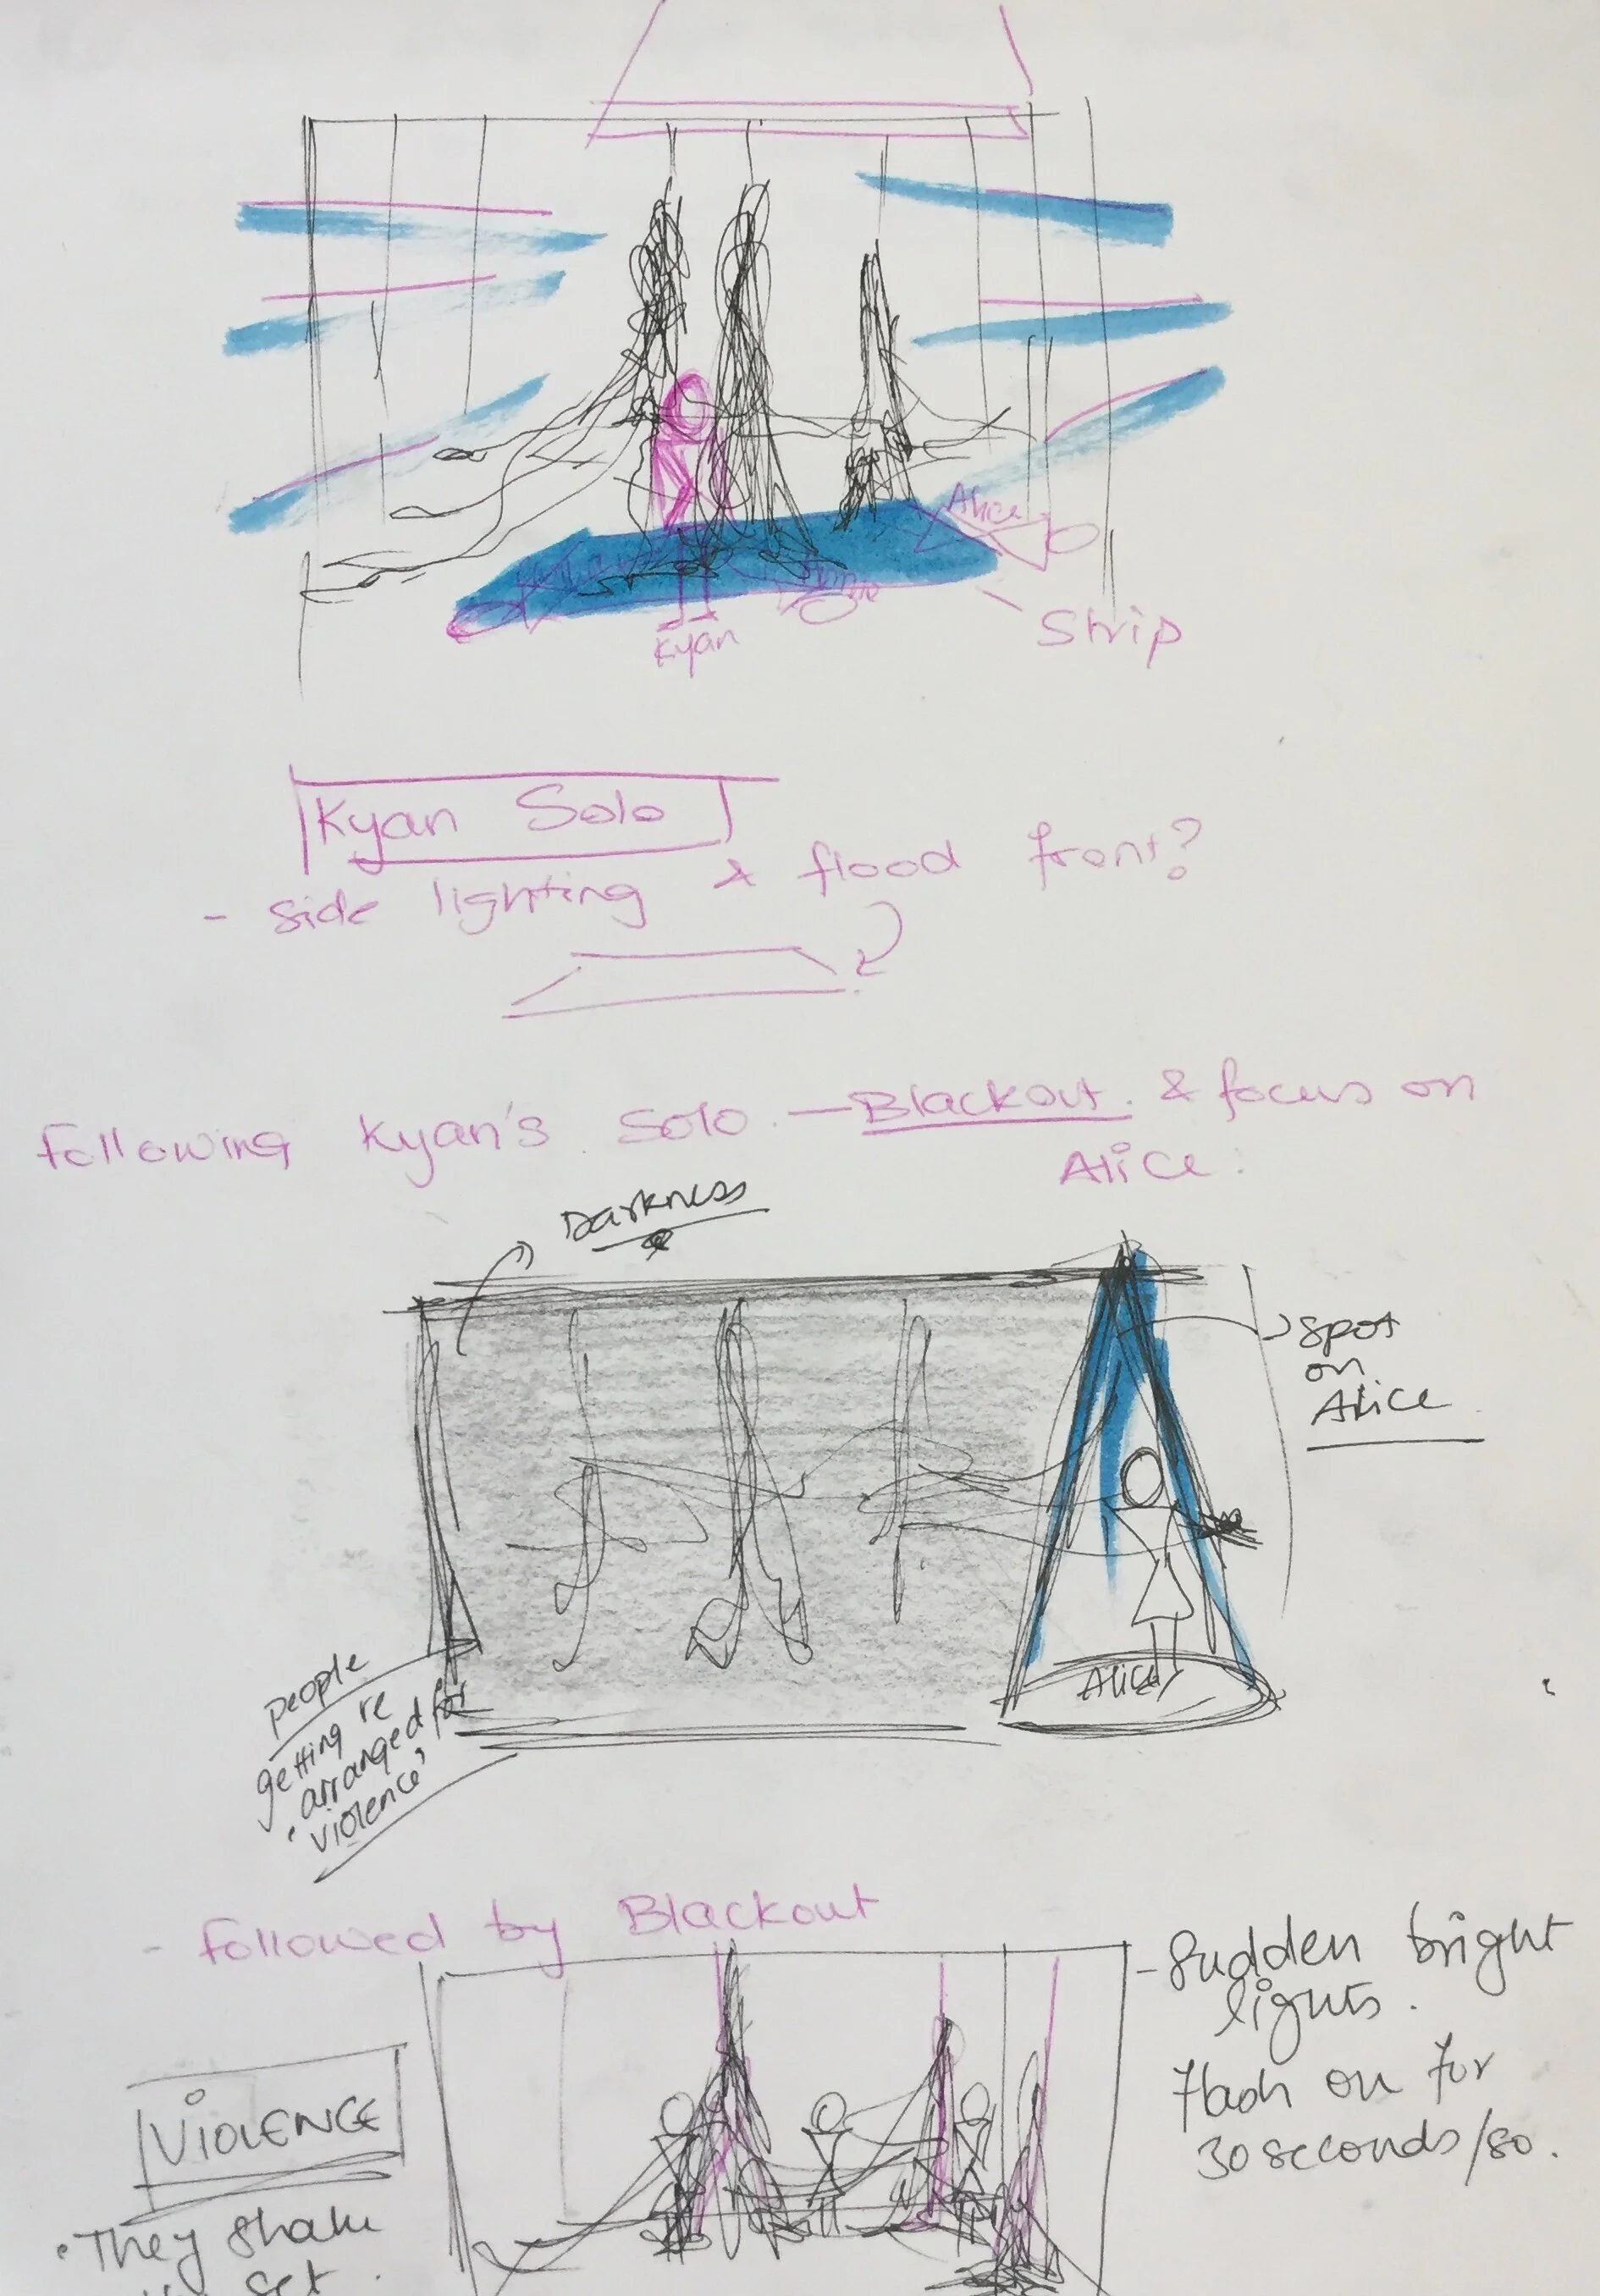 Alice
Strip
Kyan
Kyan Solo
- side lighting & flood front?
Following Kyan's Solo. — Blackout. & focus on
Alice:
Darkness
spot
on
Alice
Alice
people
getting re
arranged for
'violence'
- Followed by Blackout
- Sudden bright
lights.
flash on for
30 seconds/so.
VIOLENCE
• They shake
set.